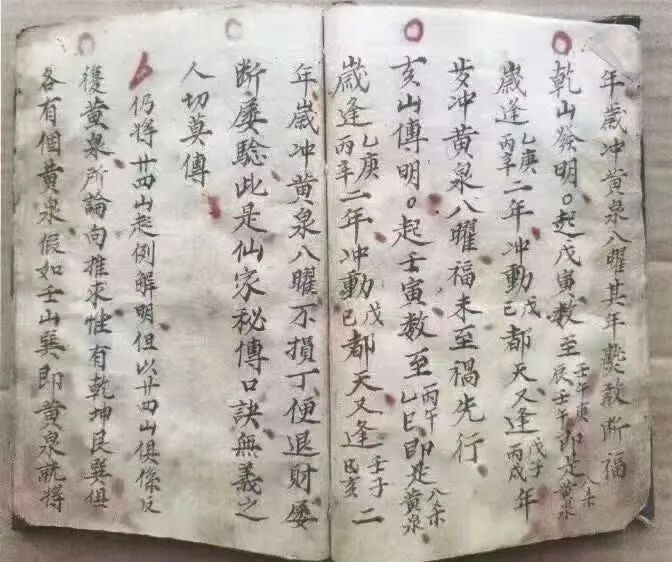 年歲冲黃泉八曜其年獎敢断福
乾山發明。起戊寅数至壬午庚辰壬午即是八杀黃泉
歲逢乙庚丙辛二年冲動戊己都天又逢戊子丙戌年
歲冲黃泉八曜福未至禍先行
亥山傳明。起壬寅数至丙午乙巳即是八杀黃泉
歲逢乙庚丙辛二年冲動戊己都天又逢壬子己亥二
年歲冲黃泉八曜不損丁便退財屡
断屡驗此是仙家秘傳口訣無義之
人切莫傳
仍將廿四山起例解明但以廿四山俱係反
復黃泉所論向推求惟有乾坤艮巽俱
各有個黃泉假如壬山巽即黃泉就將